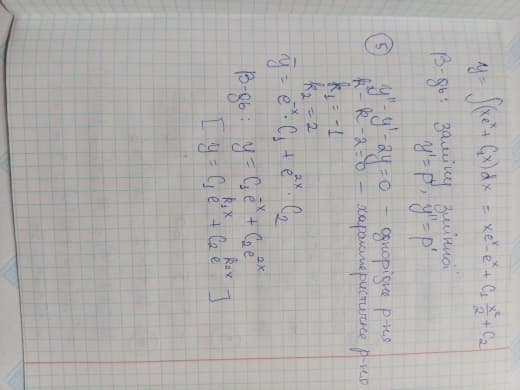 y = ∫(xeˣ + C₁x)dx = xeˣ - eˣ + C₁ x²/2 + C₂
В-дь: заміну змінної
y' = p, y'' = p'
⑤ y'' - y' - 2y = 0 – однорідне р-ня
k² - k - 2 = 0 – характеристичне р-ня
k₁ = -1
k₂ = 2
ȳ = e⁻ˣ · C₁ + e²ˣ · C₂
В-дь: y = C₁e⁻ˣ + C₂e²ˣ
[ y = C₁e^(k₁x) + C₂e^(k₂x) ]